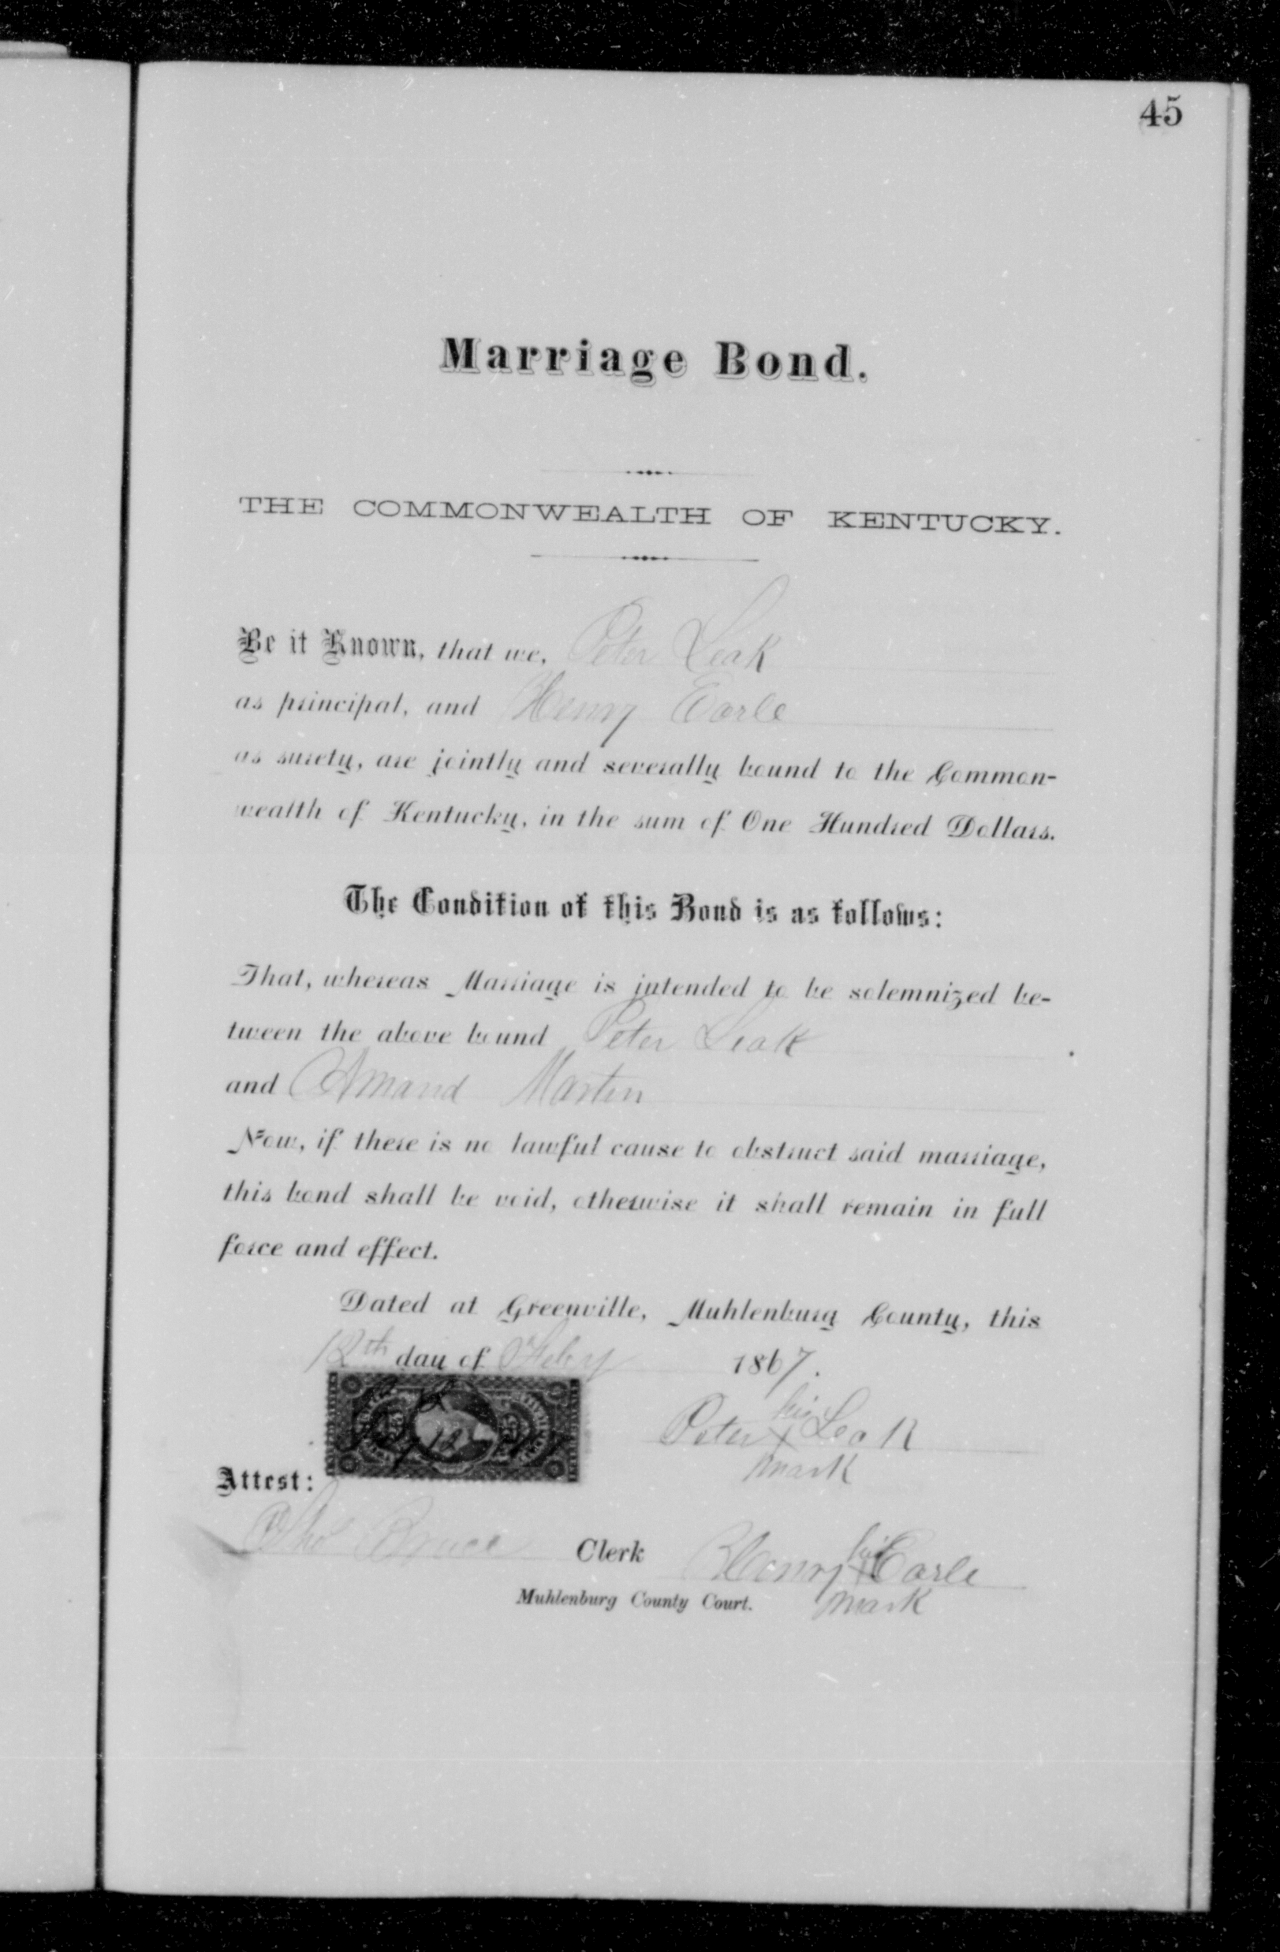 45
Marriage Bond.
THE COMMONWEALTH OF KENTUCKY.
Be it Known, that we, Peter Leak
as principal, and Henry Earle
as surety, are jointly and severally bound to the Common-
wealth of Kentucky, in the sum of One Hundred Dollars.
The Condition of this Bond is as follows:
That, whereas Marriage is intended to be solemnized be-
tween the above bound Peter Leak
and Amand Martin
Now, if there is no lawful cause to obstruct said marriage,
this bond shall be void, otherwise it shall remain in full
force and effect.
Dated at Greenville, Muhlenburg County, this
12th day of Feby 1867.
his
Peter X Leak
mark
Attest:
Bruce Clerk
his
Henry X Earle
Muhlenburg County Court.
mark